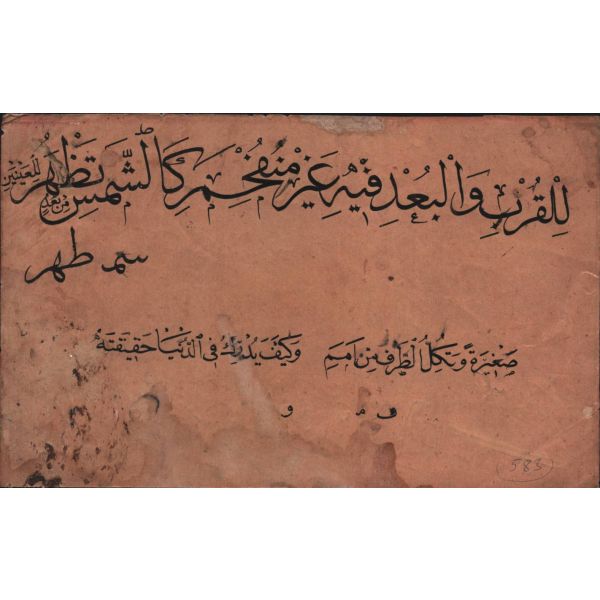 لِلْقُرْبِ وَالْبُعْدِ فِيهِ غَيْرُ مُنْفَحِمِ كَالشَّمْسِ تَظْهَرُ لِلْعَيْنَيْنِ مِنْ بُعُدٍ
طهر
صَغِيرَةً وَتَكِلُّ الطَّرْفَ مِنْ اَمَمِ وَكَيْفَ يُدْرِكُ فِى الدُّنْيَا حَقِيقَتَهُ
و م و
583